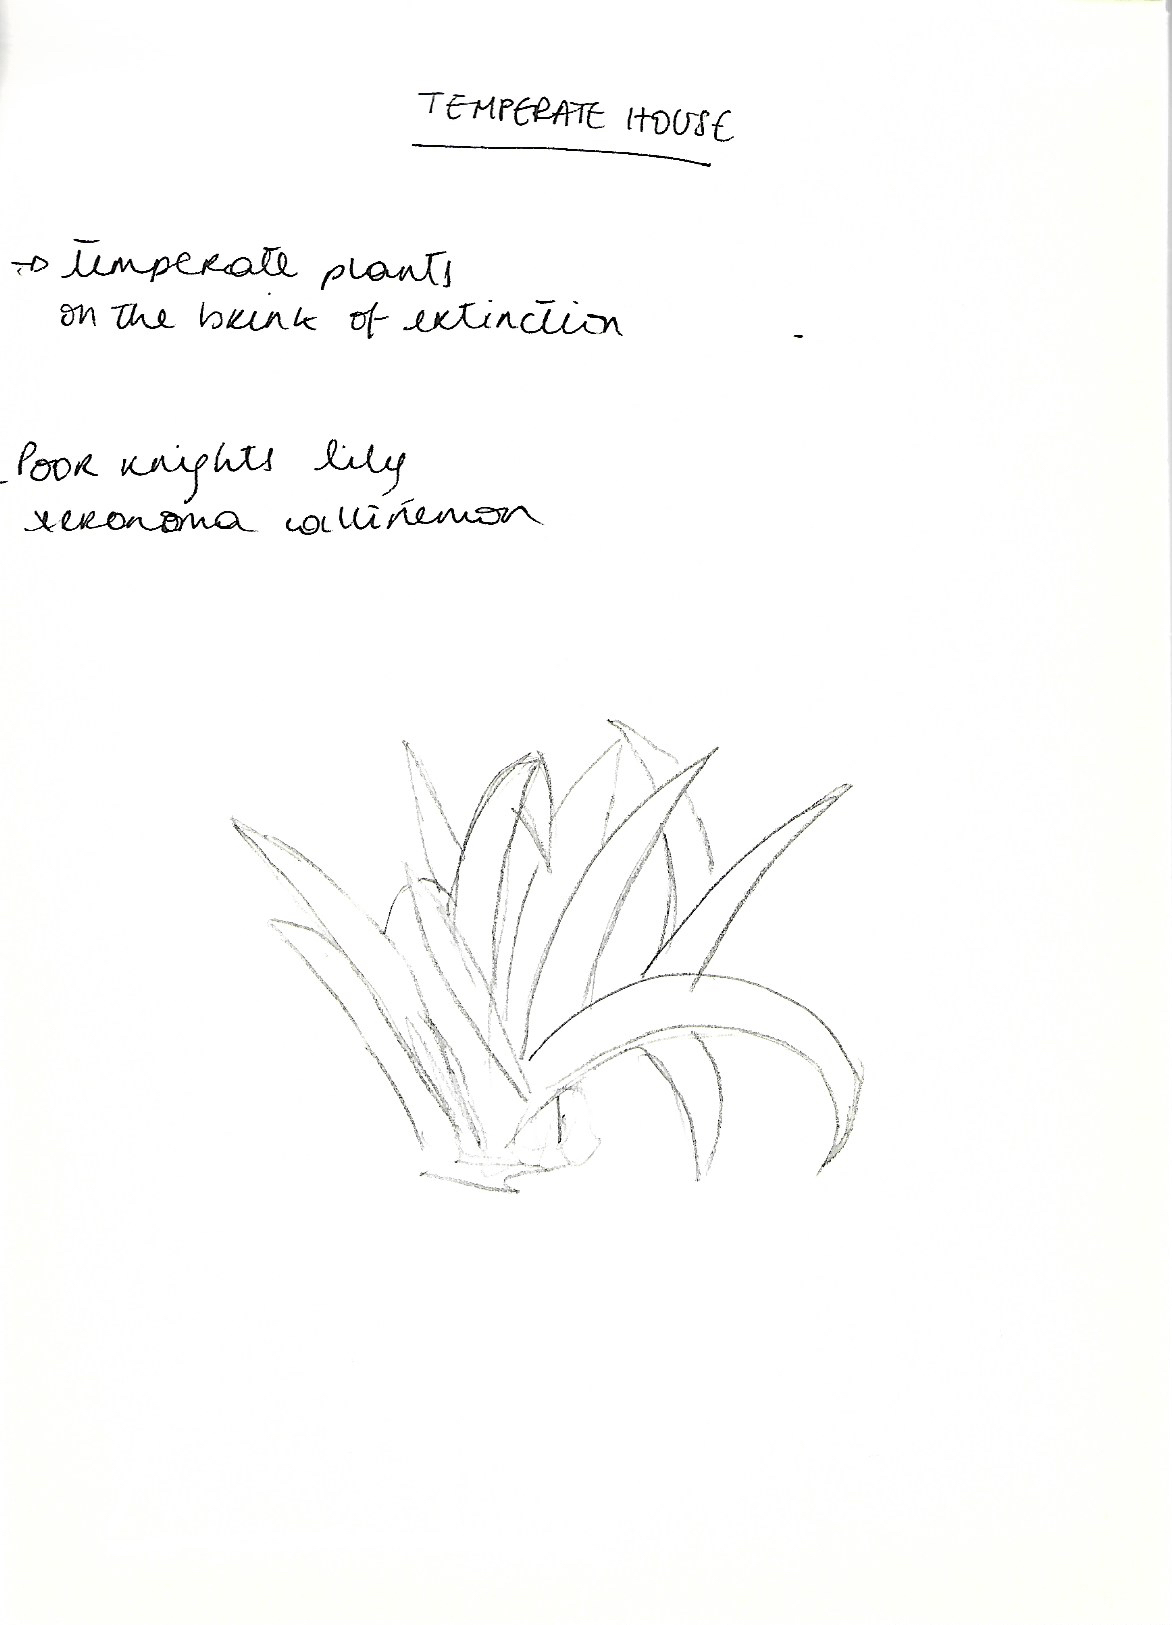 TEMPERATE HOUSE
→ temperate plants
on the brink of extinction
Poor knights lily
xeronoma callinemon